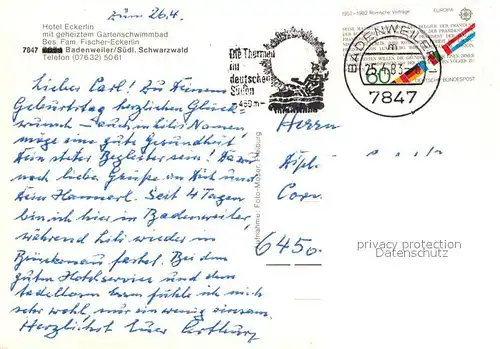 Zum 26.4.
Hotel Eckerlin
mit geheiztem Gartenschwimmbad
Bes. Fam. Fischer-Eckerlin
7847 Badenweiler/Südl. Schwarzwald
Telefon (07632) 5061
Lieber Carl! Zu Deinem
Geburtstag herzlichen Glück-
wunsch – auch in Lilis Namen,
möge eine gute Gesundheit
Dein steter Begleiter sein! Dazu
noch liebe Grüße an Dich und
Dein Hannerl. Seit 4 Tagen
bin ich hier in Badenweiler,
während Lili wieder in
Brückenau fastet. Bei dem
guten Hotelservice und dem
tadellosen Essen fühle ich mich
sehr wohl, nur ein wenig einsam.
Herzlichst Euer
Die Thermen
im
deutschen
Süden
450 m
BADENWEILER
25.4.83
7847
1952-1982 Römische Verträge
EUROPA
60
DEUTSCHE BUNDESPOST
Herrn
Dipl.
6450
Aufnahme: Foto-Moser, Freiburg
privacy protection
Datenschutz